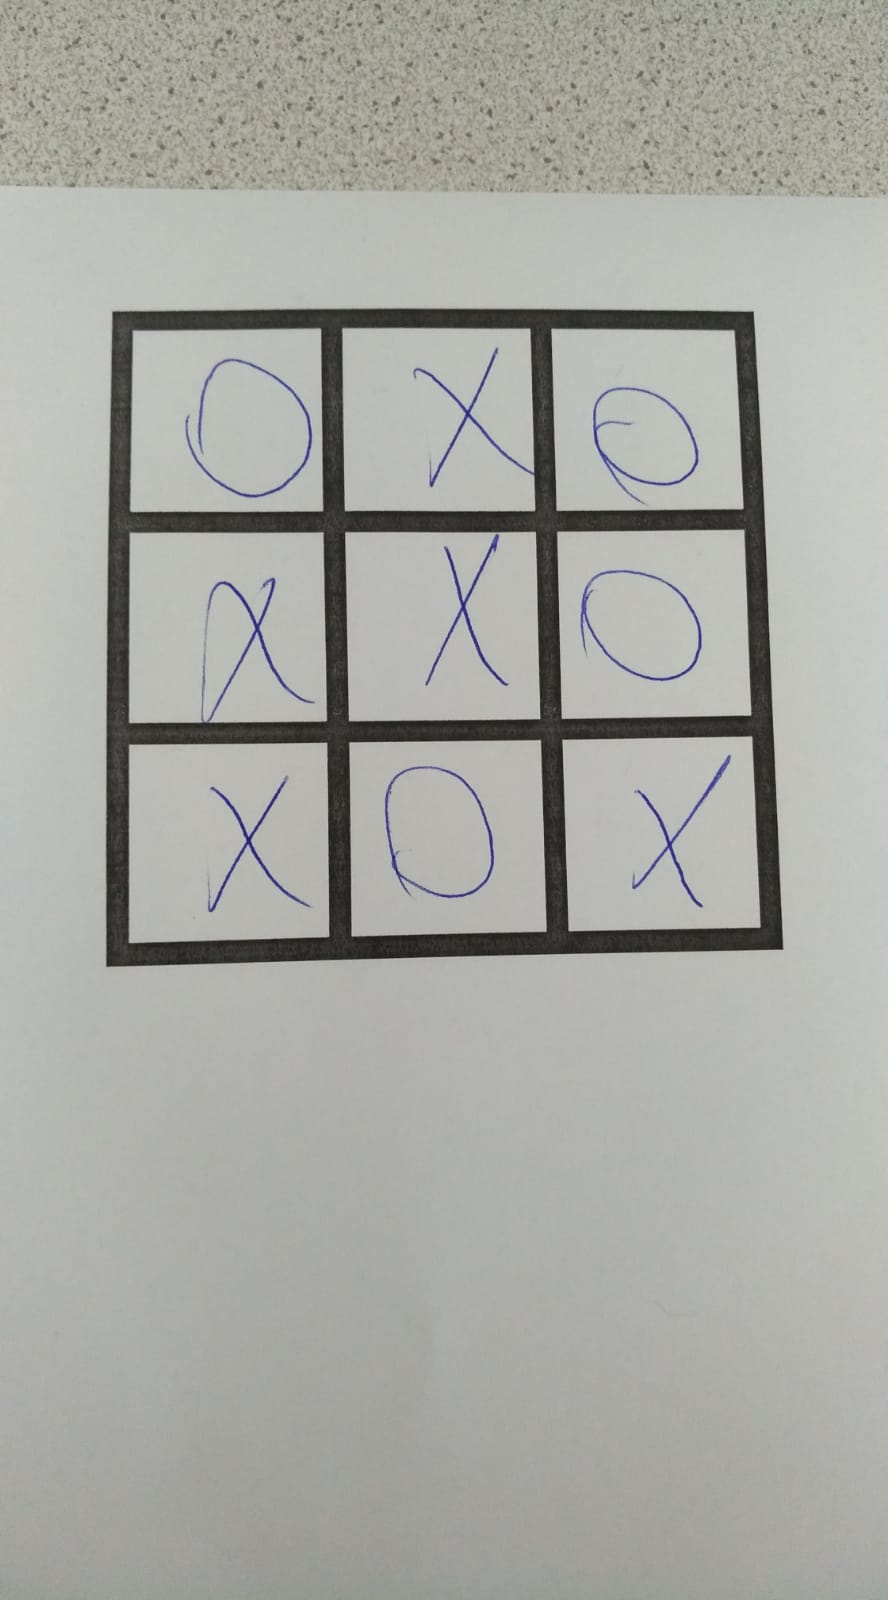 O X O
X X O
X O X